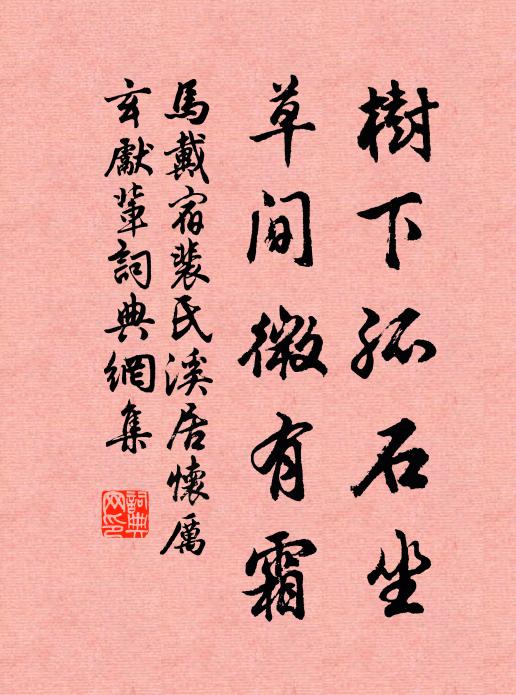 樹下孤石坐
草間微有霜
馬戴宿裴氏溪居懷厲
玄獻輩詞典網集
詞典
網印